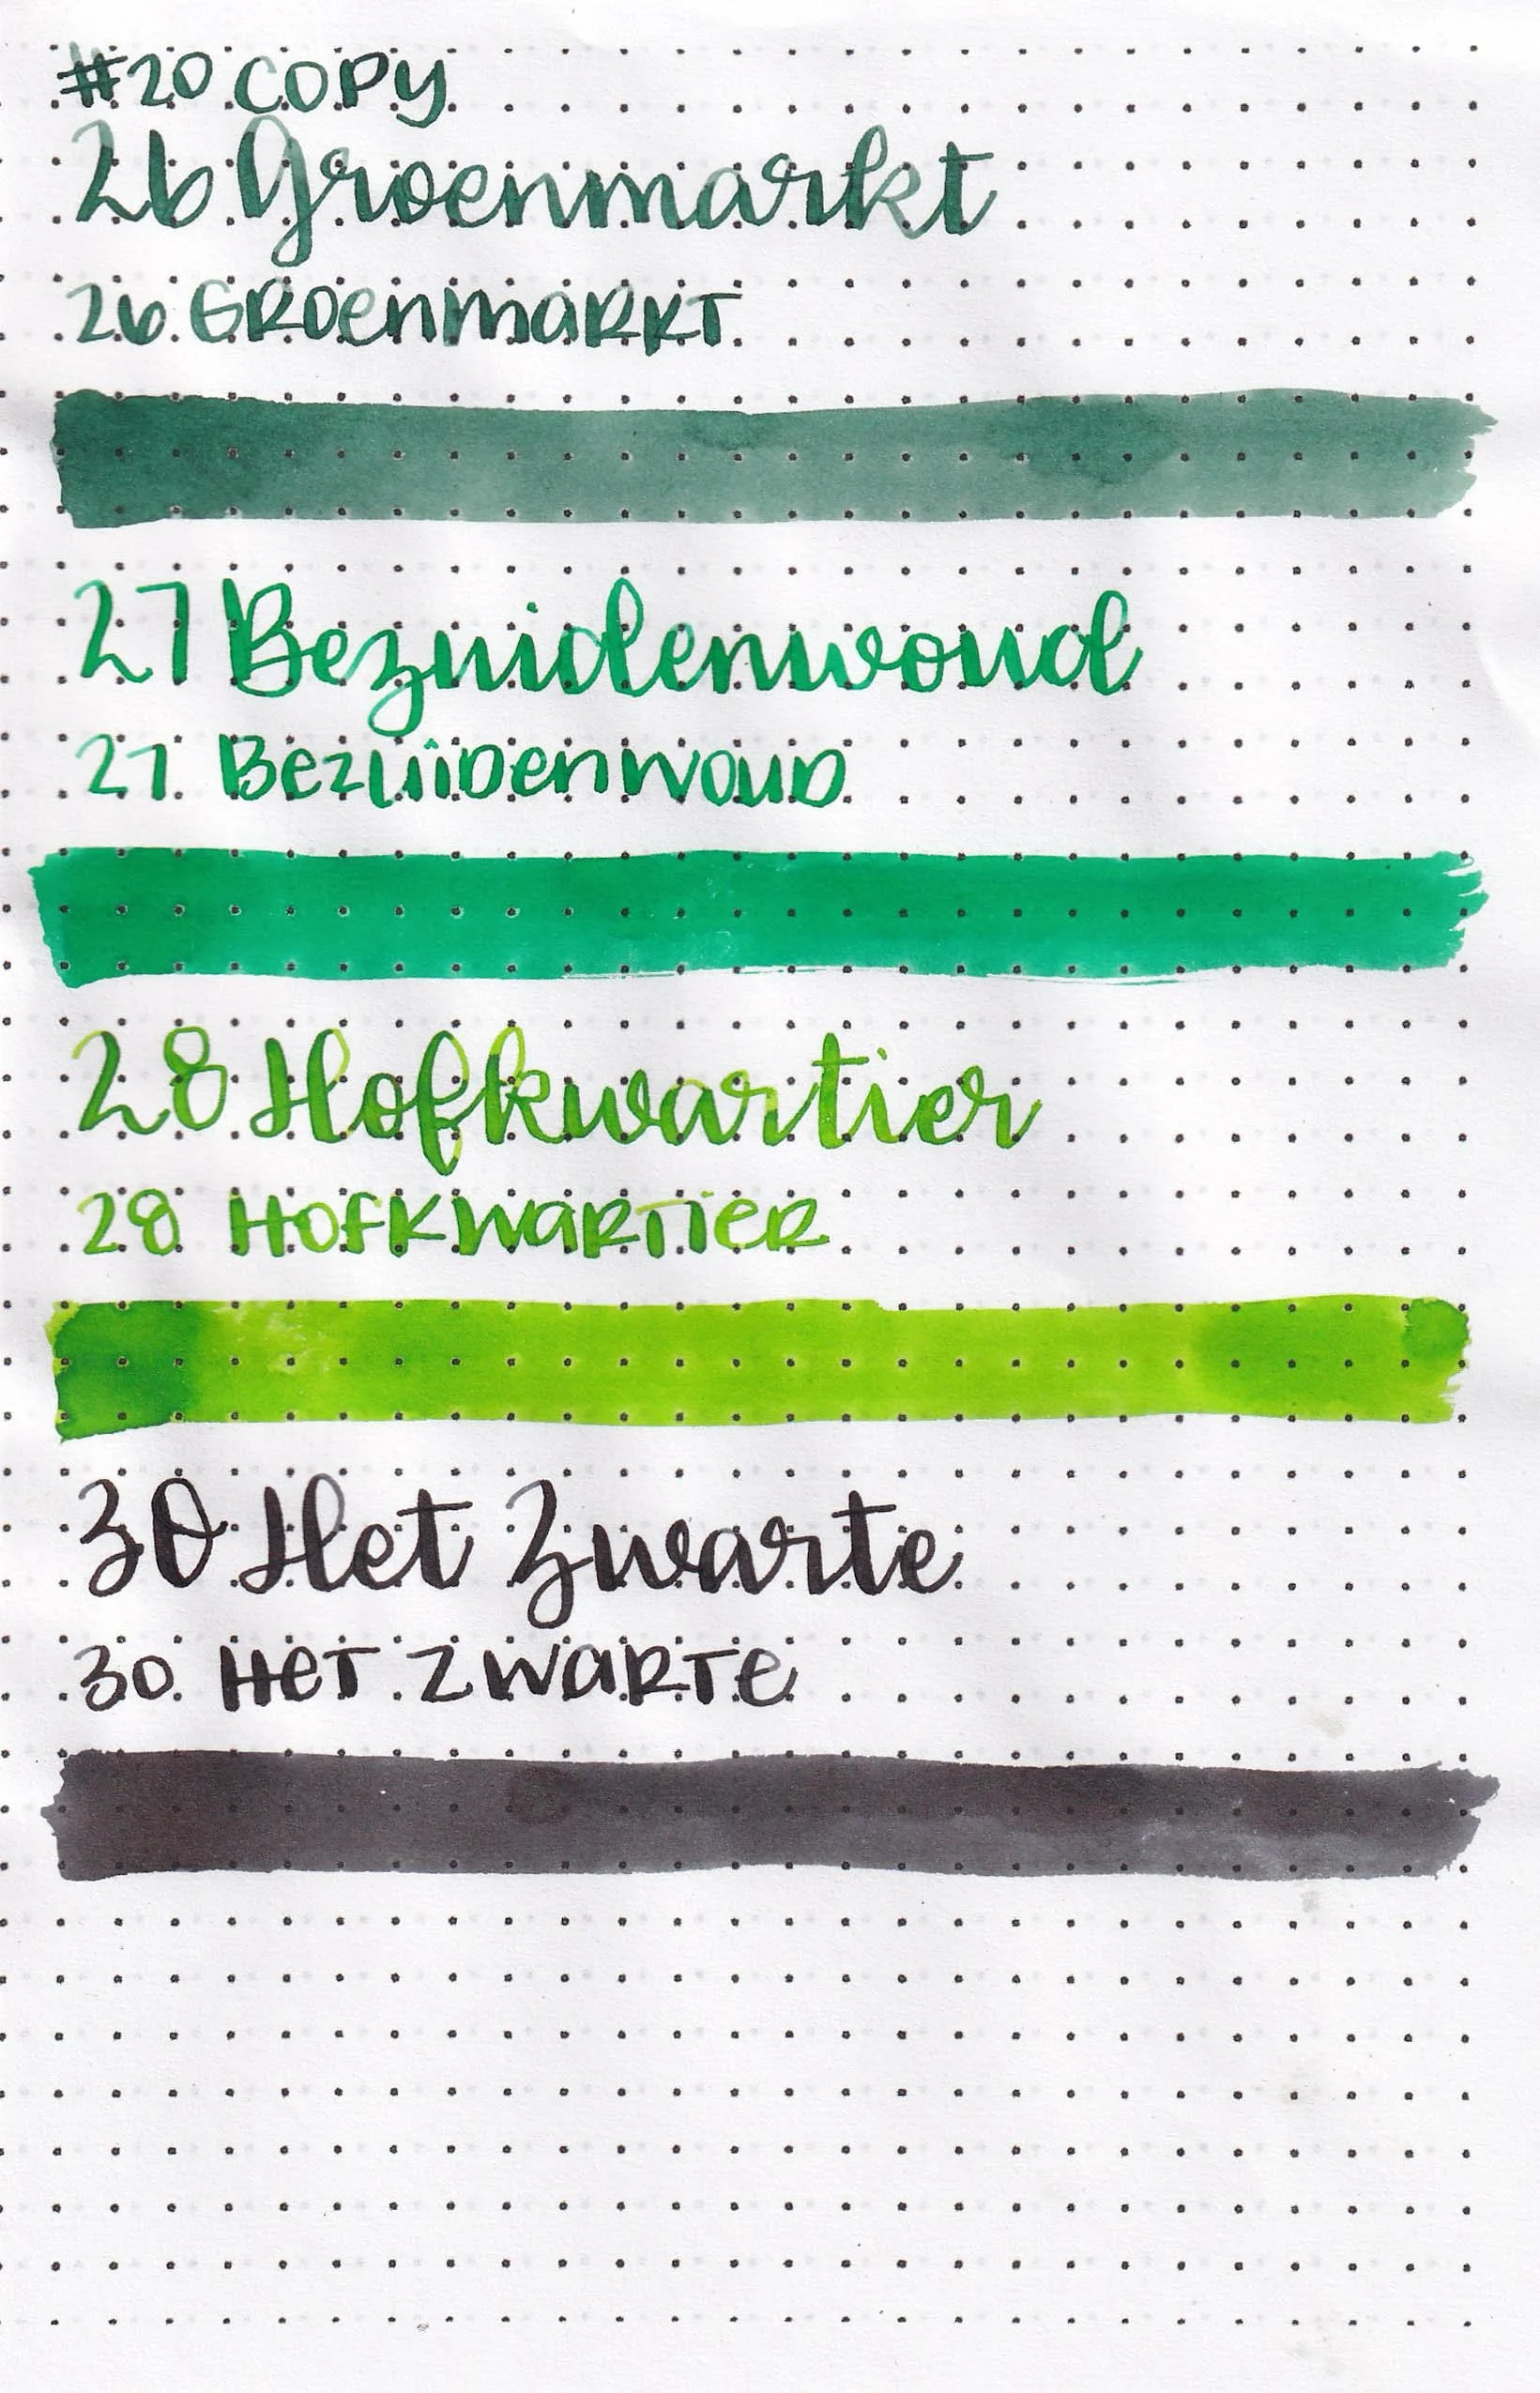 #20 COPY
26 Groenmarkt
26. GROenmaRKT
27 Bezuidenwoud
27. BezuiDenWouD
28 Hofkwartier
28 HOFKWaRTieR
30 Het Zwarte
30. HeT ZWaRTe